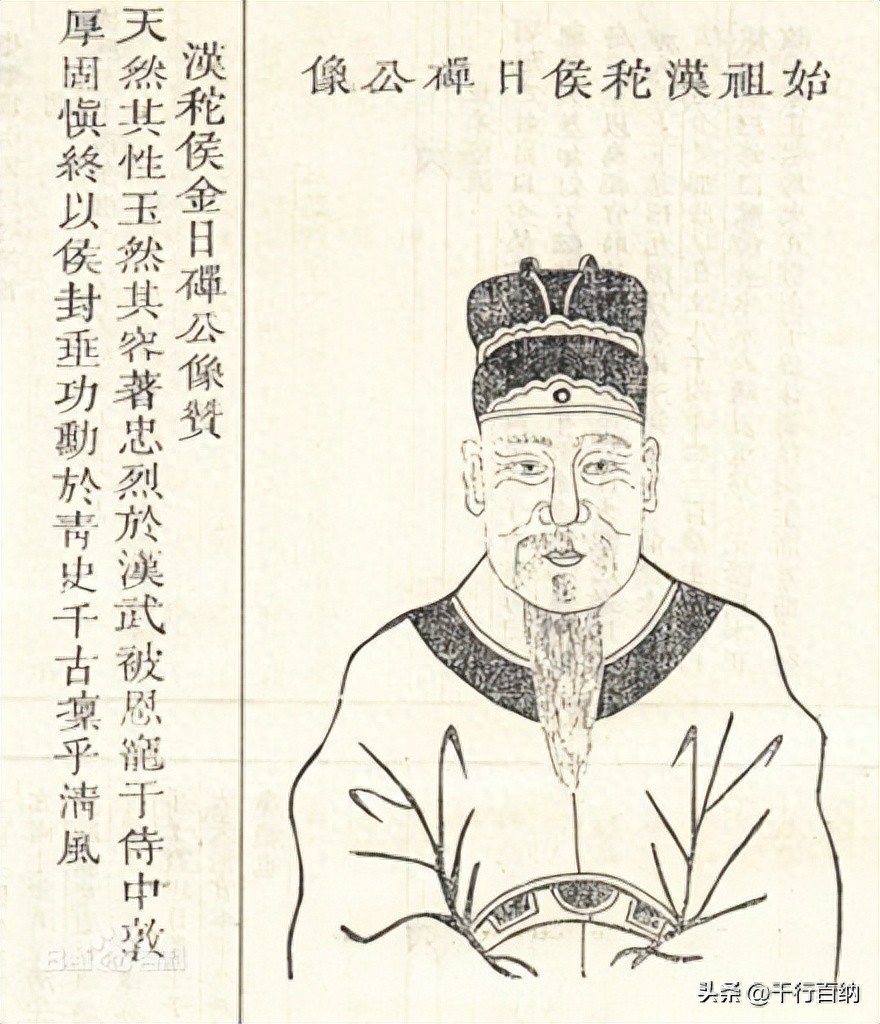 始祖漢秺侯日磾公像
漢秺侯金日磾公像贊
天然其性玉然其容著忠烈於漢武被恩寵于侍中敦
厚固慎終以侯封垂功勳於青史千古凜乎清風
头条 @千行百纳